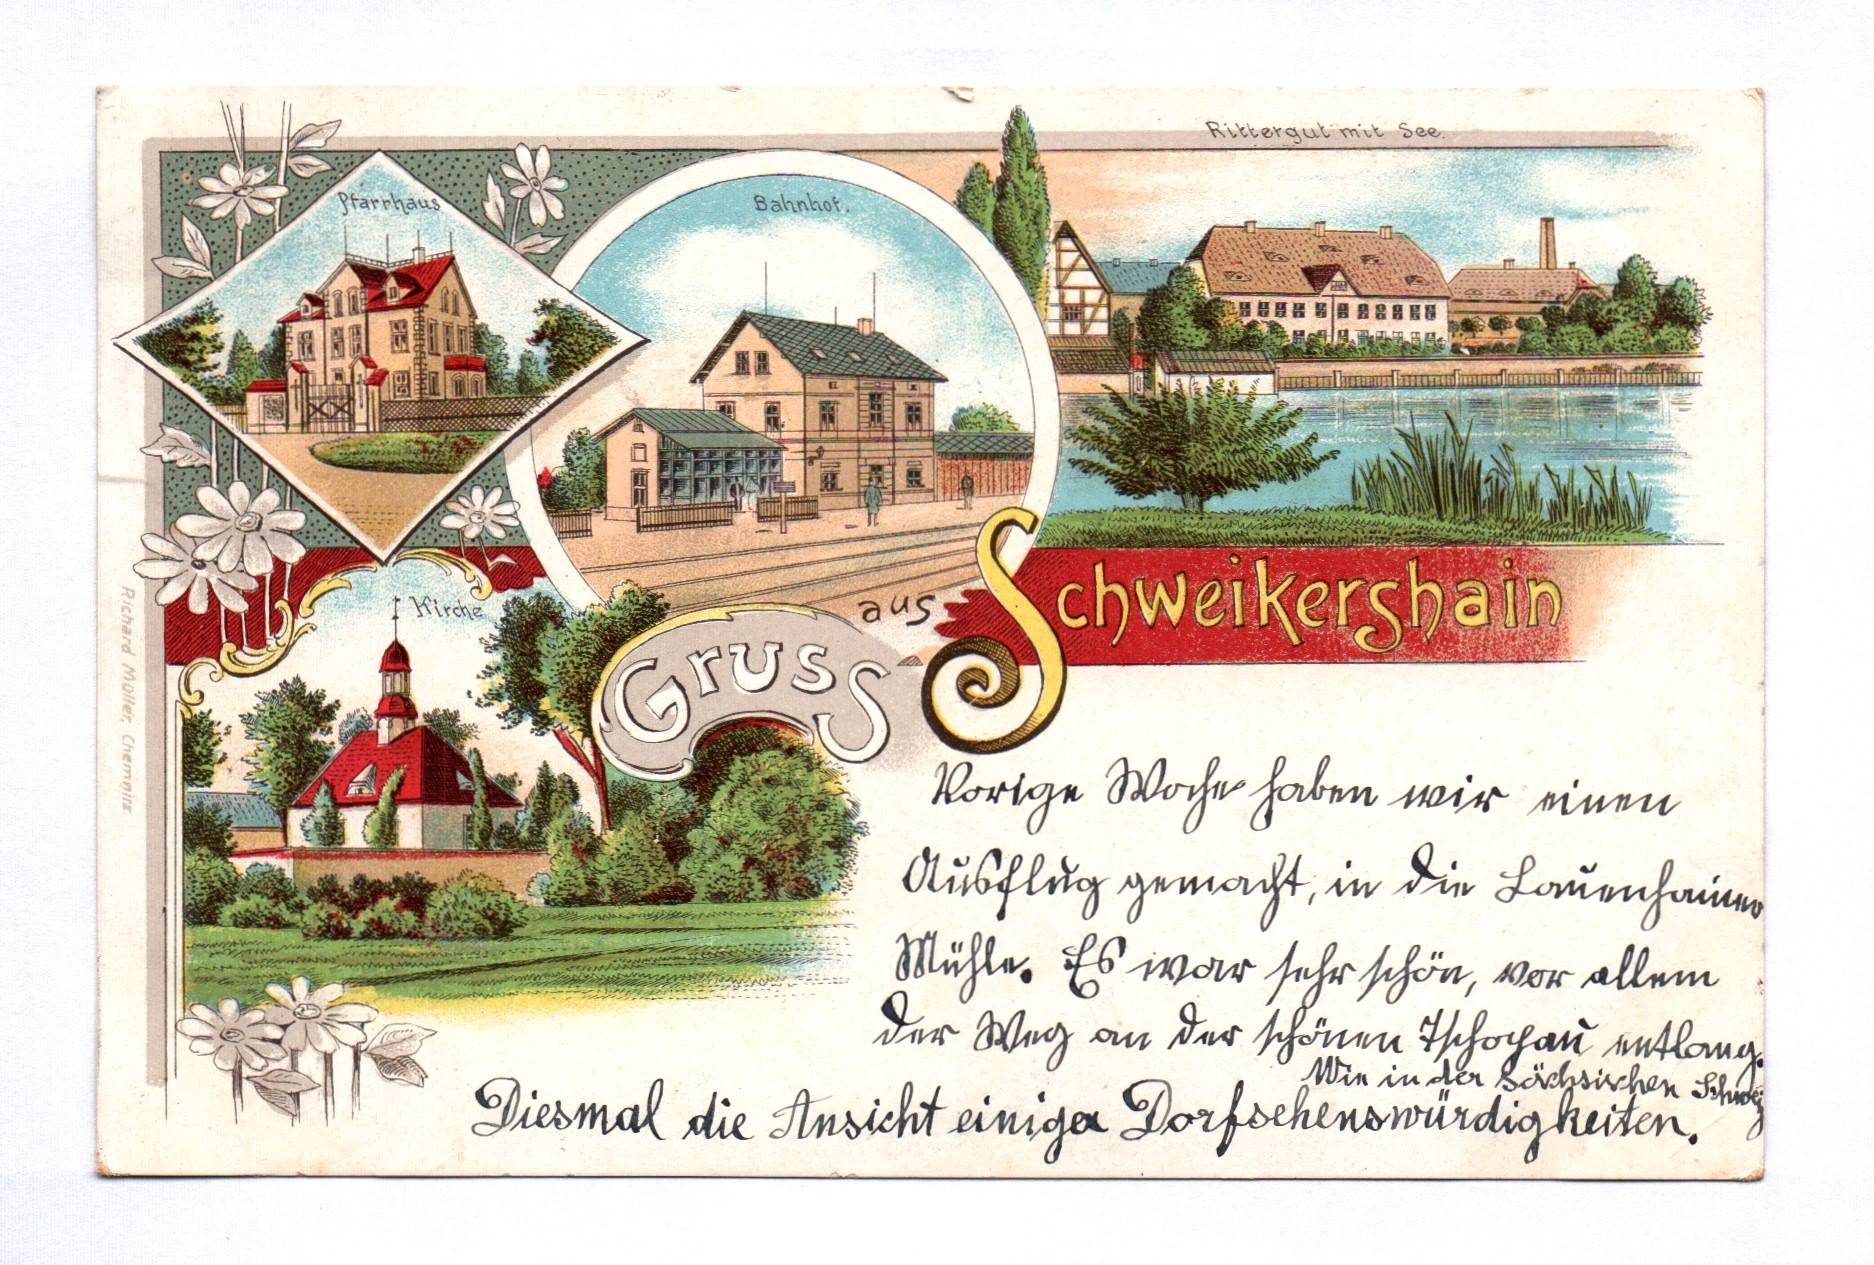 Rittergut mit See.
Pfarrhaus
Bahnhof.
Kirche
Gruss
aus
Schweikershain
Richard Möller, Chemnitz
Vorige Woche haben wir einen
Ausflug gemacht, in die Lauenhainer
Mühle. Es war sehr schön, vor allem
der Weg an der schönen Zschopau entlang.
Wie in der Sächsischen Schweiz
Diesmal die Ansicht einiger Dorfsehenswürdigkeiten.